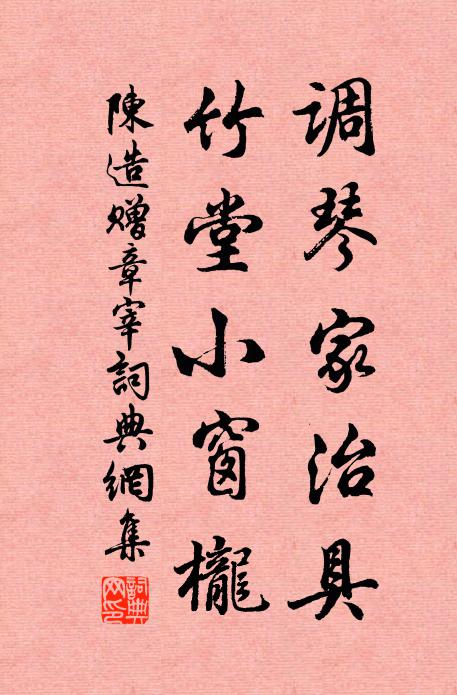 調琴家治具
竹堂小窗櫳
陳造贈章宰詞典網集
詞典网印